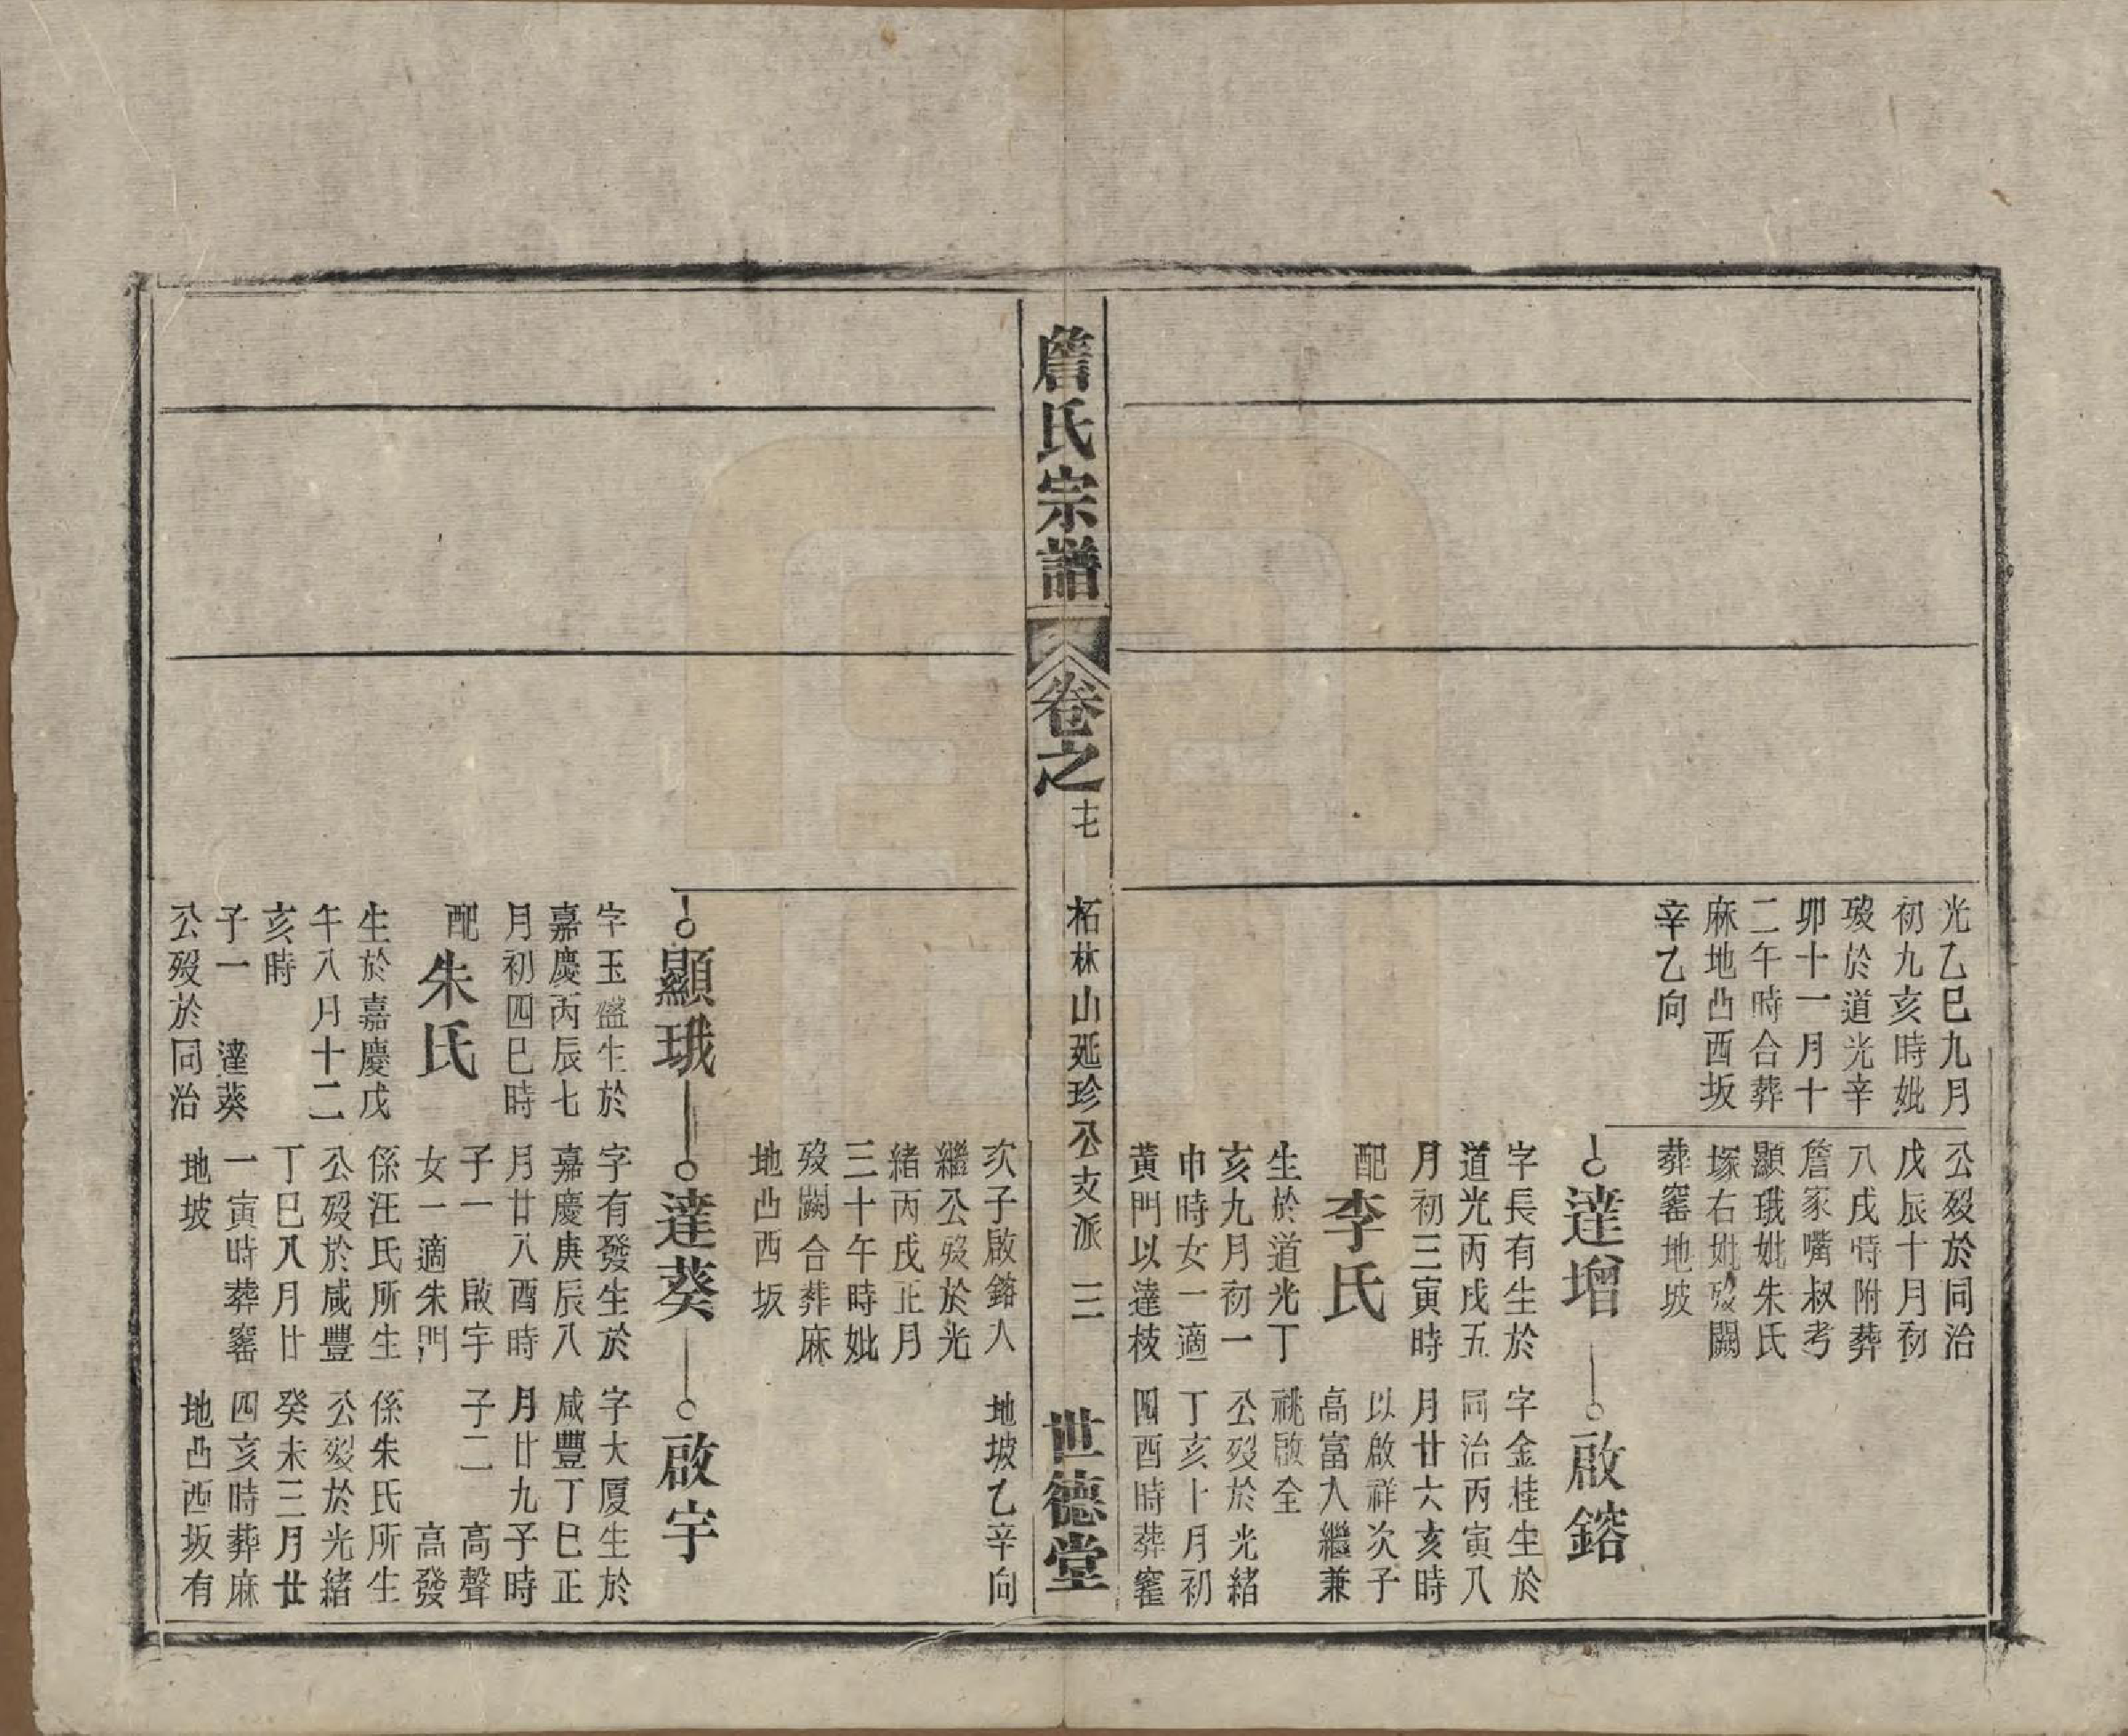 光乙巳九月
初九亥時妣
歿於道光辛
卯十一月十
二午時合葬
麻地凸酉坂
辛乙向
公歿於同治
戊辰十月初
八戌時附葬
詹家嘴叔考
顯珴妣朱氏
塚右妣歿闕
葬窰地坡
達增
字長有生於
道光丙戌五
月初三寅時
配李氏
生於道光丁
亥九月初一
申時女一適
黃門以達枝
次子啟鎔入
繼公歿於光
緒丙戌正月
三十午時妣
歿闕合葬麻
地凸西坂
啟鎔
字金桂生於
同治丙寅八
月廿六亥時
以啟祥次子
高富入繼兼
祧啟全
公歿於光緒
丁亥十月初
四酉時葬窰
地坡乙辛向
詹氏宗譜
卷之
十七
柘林山延珍公支派
三
世德堂
顯珴
字玉㻶生於
嘉慶丙辰七
月初四巳時
配朱氏
生於嘉慶戊
午八月十二
亥時
子一 達葵
公歿於同治
達葵
字有發生於
嘉慶庚辰八
月廿八酉時
子一 啟宇
女一適朱門
係汪氏所生
公歿於咸豐
丁巳八月廿
一寅時葬窰
地坡
啟宇
字大厦生於
咸豐丁巳正
月廿九子時
子二 高聲
高發
係朱氏所生
公歿於光緒
癸未三月廿
四亥時葬麻
地凸西坂有